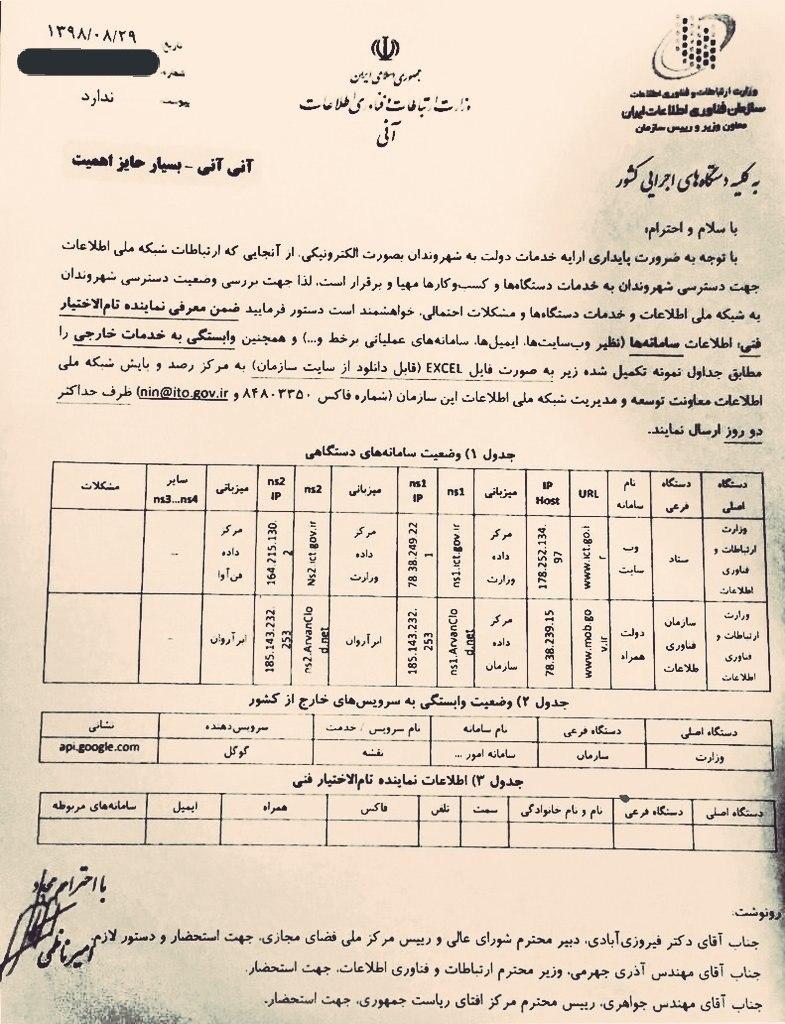 ۱۳۹۸/۰۸/۲۹
تاریخ
شماره
پیوست
ندارد
جمهوری اسلامی ایران
وزارت ارتباطات و فناوری اطلاعات
آنی
وزارت ارتباطات و فناوری اطلاعات
سازمان فناوری اطلاعات ایران
معاون وزیر و رییس سازمان
آنی آنی - بسیار حایز اهمیت
به کلیه دستگاه‌های اجرایی کشور
با سلام و احترام؛
با توجه به ضرورت پایداری ارایه خدمات دولت به شهروندان بصورت الکترونیکی، از آنجایی که ارتباطات شبکه ملی اطلاعات
جهت دسترسی شهروندان به خدمات دستگاه‌ها و کسب‌وکارها مهیا و برقرار است، لذا جهت بررسی وضعیت دسترسی شهروندان
به شبکه ملی اطلاعات و خدمات دستگاه‌ها و مشکلات احتمالی، خواهشمند است دستور فرمایید ضمن معرفی نماینده تام‌الاختیار
فنی، اطلاعات سامانه‌ها (نظیر وب‌سایت‌ها، ایمیل‌ها، سامانه‌های عملیاتی برخط و...) و همچنین وابستگی به خدمات خارجی را
مطابق جداول نمونه تکمیل شده زیر به صورت فایل EXCEL (قابل دانلود از سایت سازمان) به مرکز رصد و پایش شبکه ملی
اطلاعات معاونت توسعه و مدیریت شبکه ملی اطلاعات این سازمان (شماره فاکس ۸۴۸۰۳۳۵۰ و nin@ito.gov.ir) ظرف حداکثر
دو روز ارسال نمایند.
جدول ۱) وضعیت سامانه‌های دستگاهی
دستگاه اصلی دستگاه فرعی نام سامانه URL IP Host میزبانی ns1 ns1 IP میزبانی ns2 ns2 IP میزبانی سایر ns3...ns4 مشکلات
وزارت ارتباطات و فناوری اطلاعات ستاد وب سایت www.ict.go.i r 178.252.134. 97 مرکز داده وزارت ns1.ict.gov.ir 78.38.249.22 1 مرکز داده وزارت Ns2.ict.gov.ir 164.215.130. 2 مرکز داده فن‌آوا --
وزارت ارتباطات و فناوری اطلاعات سازمان فناوری طلاعات دولت همراه www.mob.go v.ir 78.38.239.15 مرکز داده سازمان ns1.ArvanClo d.net 185.143.232. 253 ابرآروان ns2.ArvanClo d.net 185.143.232. 253 ابرآروان --
جدول ۲) وضعیت وابستگی به سرویس‌های خارج از کشور
دستگاه اصلی دستگاه فرعی نام سامانه نام سرویس / خدمت سرویس‌دهنده نشانی
وزارت سازمان سامانه امور ... نقشه گوگل api.google.com
جدول ۳) اطلاعات نماینده تام‌الاختیار فنی
دستگاه اصلی دستگاه فرعی نام و نام خانوادگی سمت تلفن فاکس همراه ایمیل سامانه‌های مربوطه
با احترام
امیر ناظمی
رونوشت:
جناب آقای دکتر فیروزی‌آبادی، دبیر محترم شورای عالی و رییس مرکز ملی فضای مجازی، جهت استحضار و دستور لازم.
جناب آقای مهندس آذری جهرمی، وزیر محترم ارتباطات و فناوری اطلاعات، جهت استحضار.
جناب آقای مهندس جواهری، رییس محترم مرکز افتای ریاست جمهوری، جهت استحضار.